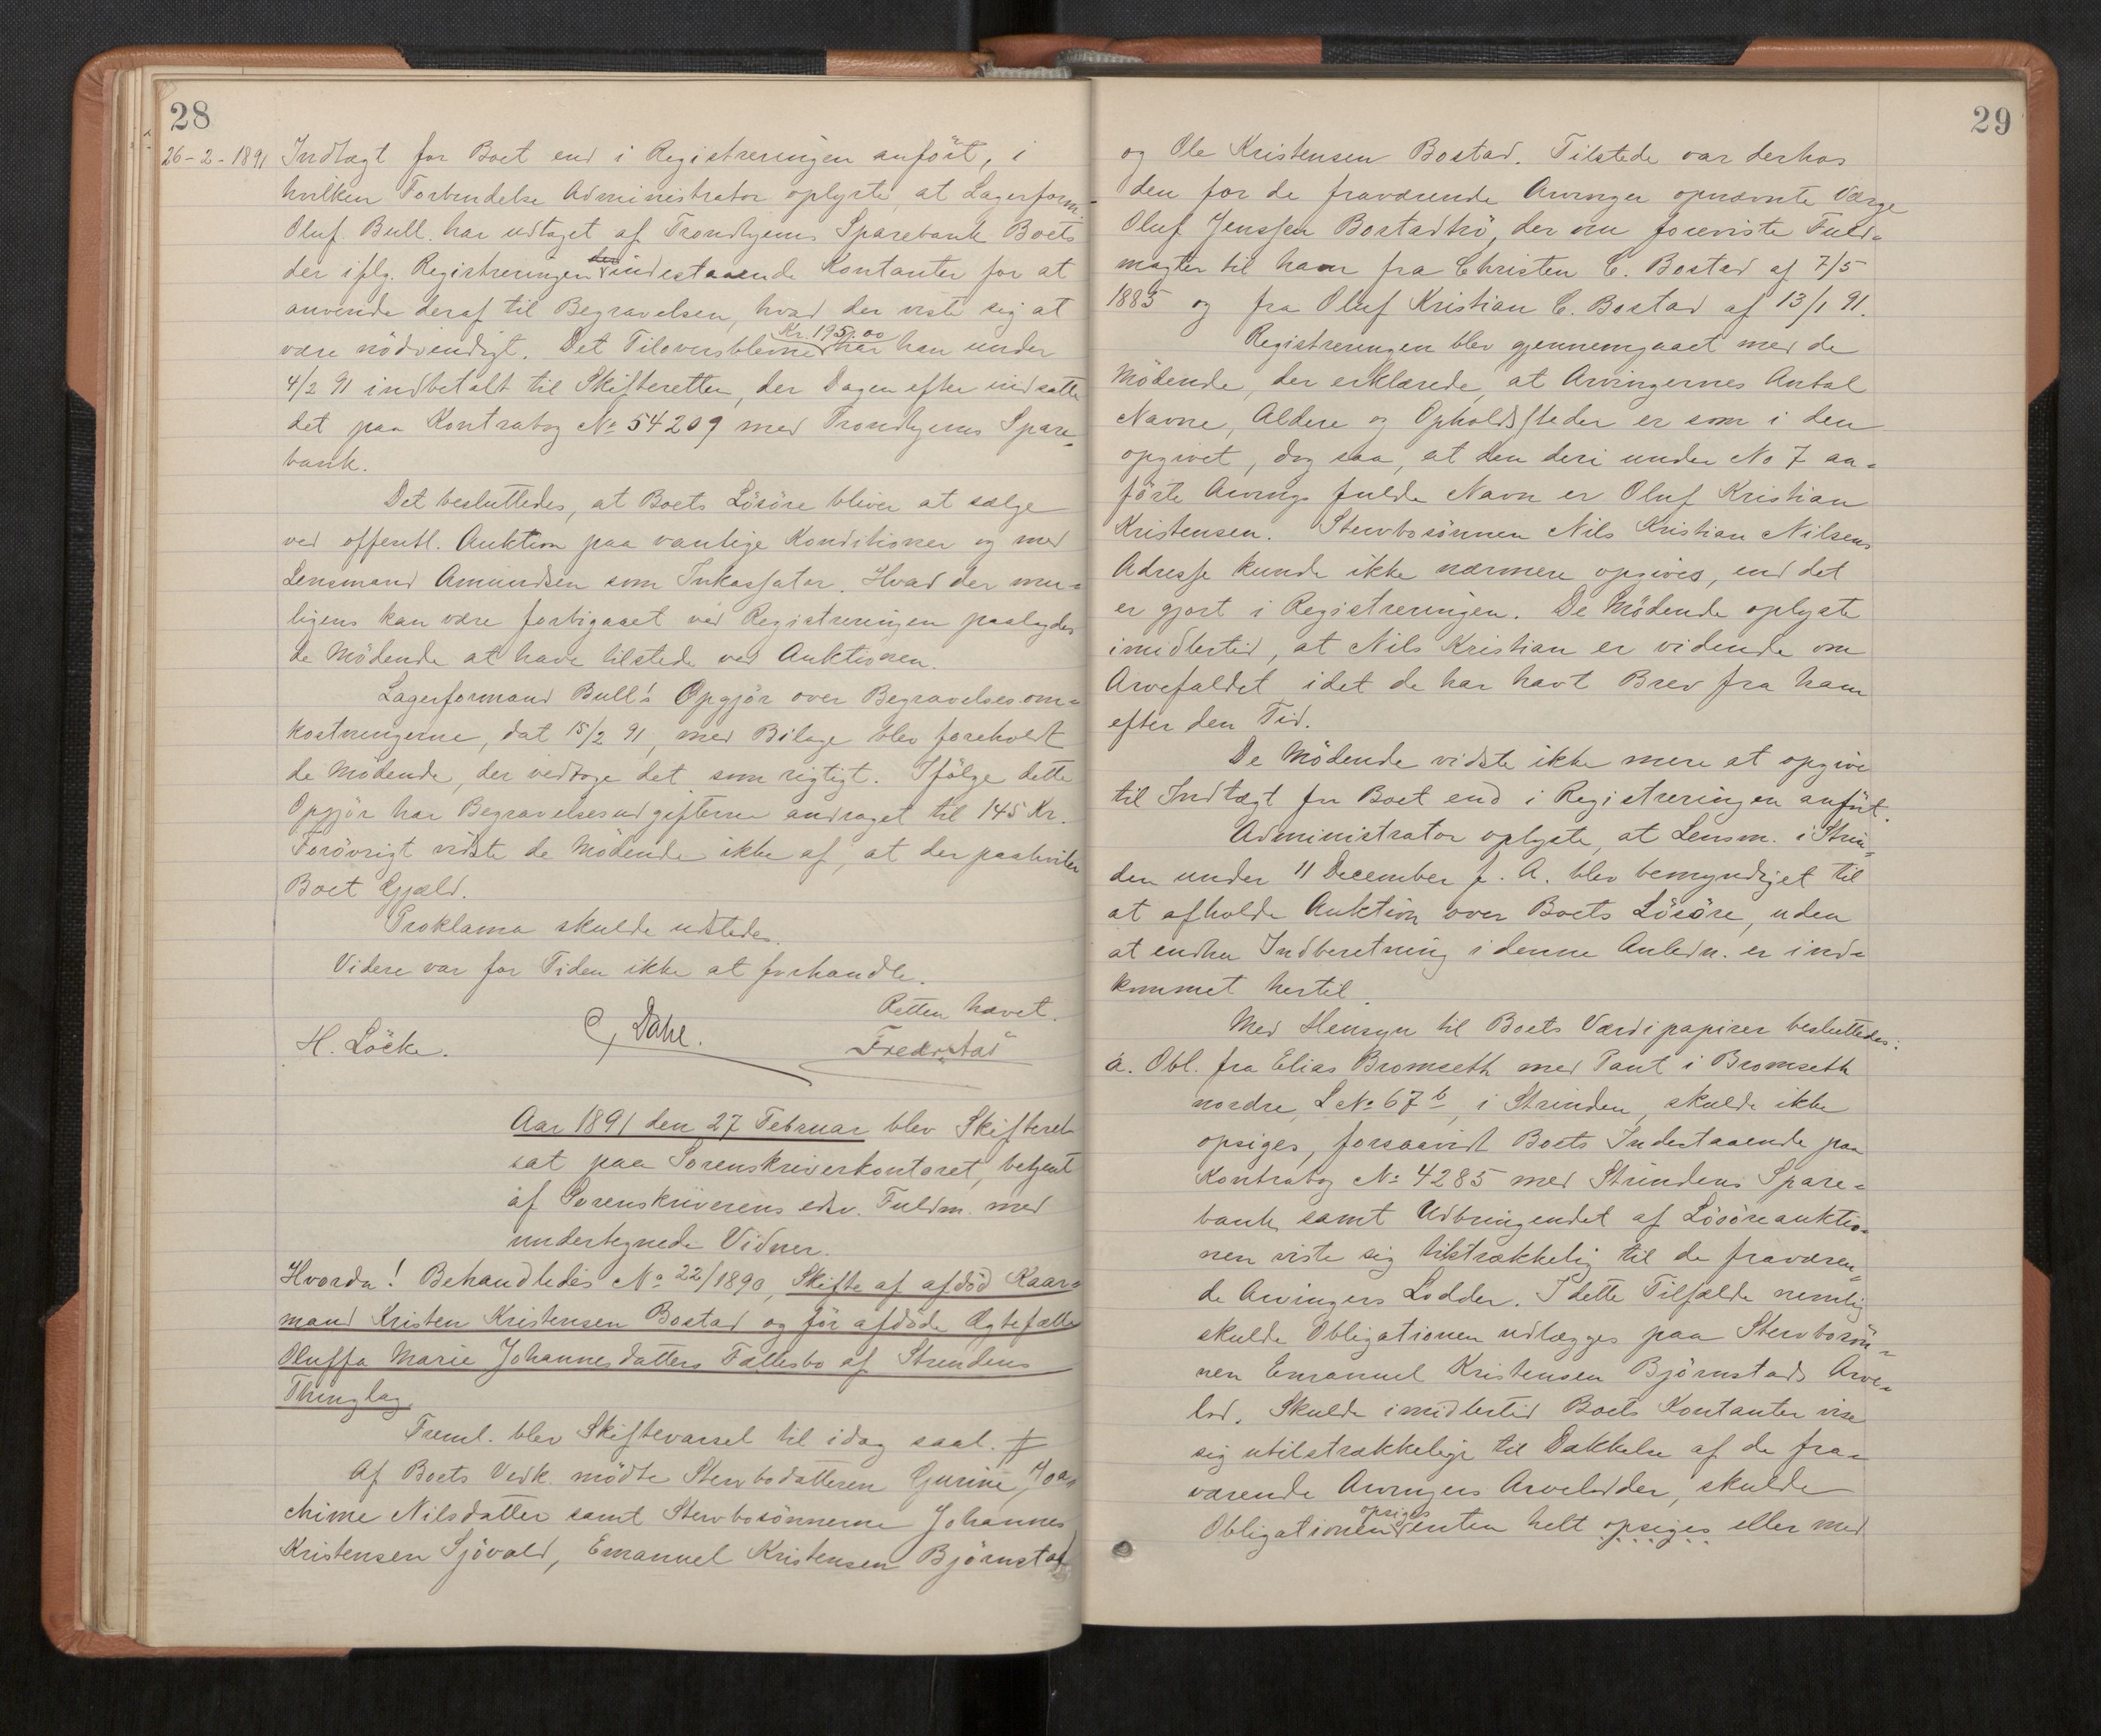 28
26-2-1891 Indtægt for Boet end i Registreringen anført, i
hvilken Forbindelse Administrator oplyste, at Lagerform.
Oluf Bull har udtaget af Trondhjems Sparebank Boets
der iflg. Registreringen indestaaende Kontanter for at
anvende deraf til Begravelsen, hvad der viste sig at
være nödvendigt. Det Tiloversblevne Kr. 195,00 har han under
4/2 91 indbetalt til Skifteretten, der Dagen efter indsatte
det paa Kontrabog No 54209 med Trondhjems Spare-
bank.
Det besluttedes, at Boets Lösöre bliver at sælge
ved offentl. Auktion paa vanlige Konditioner og med
Lensmand Amundsen som Inkassator. Hvad der mu-
ligens kan være forbigaaet ved Registreringen paalagdes
de Mödende at have tilstede ved Auktionen.
Lagerformand Bull's Opgjör over Begravelsesom-
kostningerne, dat 15/2 91, med Bilage blev foreholdt
de Mödende, der vedtoge det som rigtigt. Ifölge dette
Opgjör har Begravelsesudgifterne andraget til 145 Kr.
Forövrigt vidste de Mödende ikke af, at der paahviler
Boet Gjæld.
Proklama skulde udstedes.
Videre var for Tiden ikke at forhandle.
Retten hævet.
H. Löcke. C. Dahl. Fredrstad
Aar 1891 den 27 Februar blev Skifteret
sat paa Sorenskriverkontoret, betjent
af Sorenskriverens edsv. Fuldm. med
undertegnede Vidner.
Hvorda! Behandledes No 22/1890, Skifte af afdöd Kaar-
mand Kristen Kristensen Bostad og för afdöde Ægtefælle
Oluffa Marie Johannesdatters Fællesbo af Strindens
Thinglag.
Freml. blev Skiftevarsel til idag saal. #
Af Boets Vedk. mödte Stervbodatteren Gurine Joa-
chime Nilsdatter samt Stervbosönnerne Johannes
Kristensen Sjövold, Emanuel Kristensen Björnstad
29
og Ole Kristensen Bostad. Tilstede var derhos
den for de fraværende Arvinger opnævnte Værge
Oluf Jenssen Bostadtrö, der nu foreviste Fuld-
magter til ham fra Christen C. Bostad af 7/5
1885 og fra Oluf Kristian C. Bostad af 13/1 91.
Registreringen blev gjennemgaaet med de
Mödende, der erklærede, at Arvingernes Antal
Navne, Aldere og Opholdssteder er som i den
opgivet, dog saa, at den deri under No 7 an-
förte Arvings fulde Navn er Oluf Kristian
Kristensen. Stervbosönnen Nils Kristian Nilsens
Adresse kunde ikke nærmere opgives, end det
er gjort i Registreringen. De Mödende oplyste
imidlertid, at Nils Kristian er vidende om
Arvefaldet idet de har havt Brev fra ham
efter den Tid.
De Mödende vidste ikke mere at opgive
til Indtægt for Boet end i Registreringen anfört.
Administrator oplyste, at Lensm. i Strin-
den under 11 December f. A. blev bemyndiget til
at afholde Auktion over Boets Lösöre, uden
at endnu Indberetning i denne Anledn. er ind-
kommet hertil.
Med Hensyn til Boets Værdipapirer besluttedes:
a. Obl. fra Elias Bromseth med Pant i Bromseth
nordre, L No 67 b, i Strinden, skulde ikke
opsiges, forsaavidt Boets Indestaaende paa
Kontrabog No 4285 med Strindens Spare-
bank samt Udbringendet af Lösöreauktio-
nen viste sig tilstrækkelig til de fraværen-
de Arvingers Lodder. I dette Tilfælde nemlig
skulde Obligationen udlægges paa Stervbosön-
nen Emanuel Kristensen Björnstads Arve-
lod. Skulde imidlertid Boets Kontanter vise
sig utilstrækkelige til Dækkelse af de fra-
værende Arvingers Arvelodder, skulde
Obligationen opsiges enten helt opsiges eller med